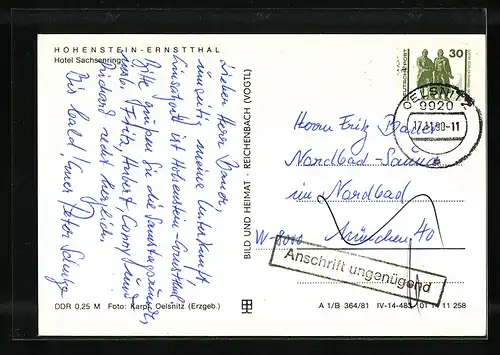 HOHENSTEIN-ERNSTTHAL
Hotel Sachsenring
Lieber Herr Bauer,
umseitig meine Unterkunft.
Einsatzort ist Hohenstein-Ernstthal
Bitte grüßen Sie die Samstagsrunde,
Fritz, Hubert, Conny und
Richard recht herzlich.
Bis bald! Euer Peter
DDR 0,25 M Foto: Karpf, Oelsnitz (Erzgeb.)
BILD UND HEIMAT · REICHENBACH (VOGTL)
DEUTSCHE POST
30
OELSNITZ
9920
27.11.90-11
Herrn Fritz Bauer
Nordbad-Sauna
im Nordbad
W-8000
München 40
Anschrift ungenügend
A 1/B 364/81 IV-14-483 01 14 11 258